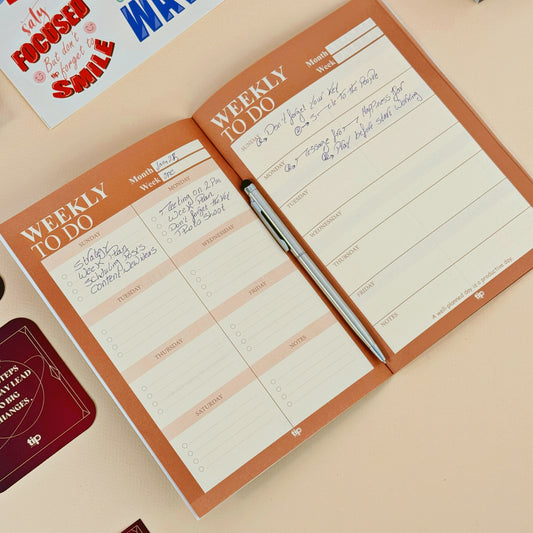 Stay
FOCUSED
But don't
forget to
SMILE
WEEKLY
TO DO
Month
Week one
SUNDAY
Strategy
Week Plan
Schduling Posts
Content
MONDAY
Meeting on 2 PM
Week Plan
Don't forget the key
Photo shoot
TUESDAY
WEDNESDAY
THURSDAY
FRIDAY
SATURDAY
NOTES
tip
WEEKLY
TO DO
Month
Week
SUNDAY
Don't forget Your key
to the People
MONDAY
Message for Happiness For
Play before start Working
TUESDAY
WEDNESDAY
THURSDAY
FRIDAY
NOTES
A well-planned day is a productive day
tip
STEPS
LEAD
TO BIG
CHANGES.
tip